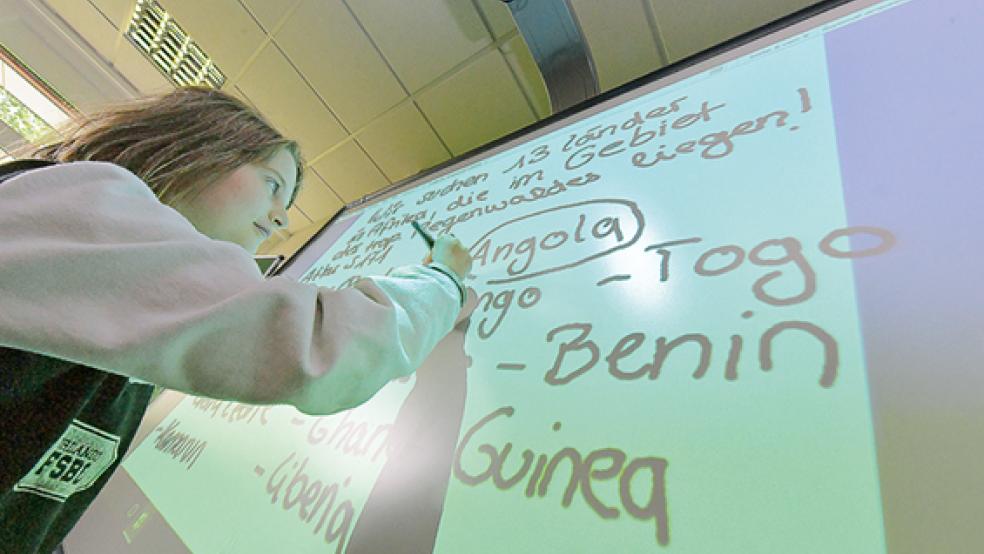 Wir suchen 13 länder
in Afrika, die im Gebiet
des trop. Regenwaldes liegen!
Atlas S.171
Angola
ngo - Togo
- Benin
- Ghan
Guinea
- Kamerun
- Liberia
FSBL